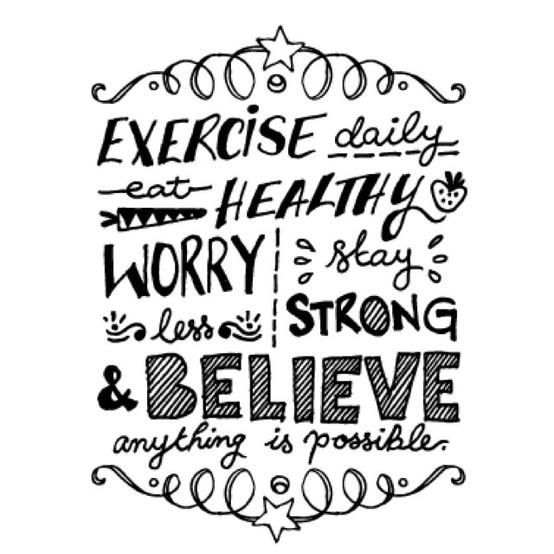 EXERCISE daily
eat HEALTHY
WORRY
less
stay
STRONG
& BELIEVE
anything is possible.